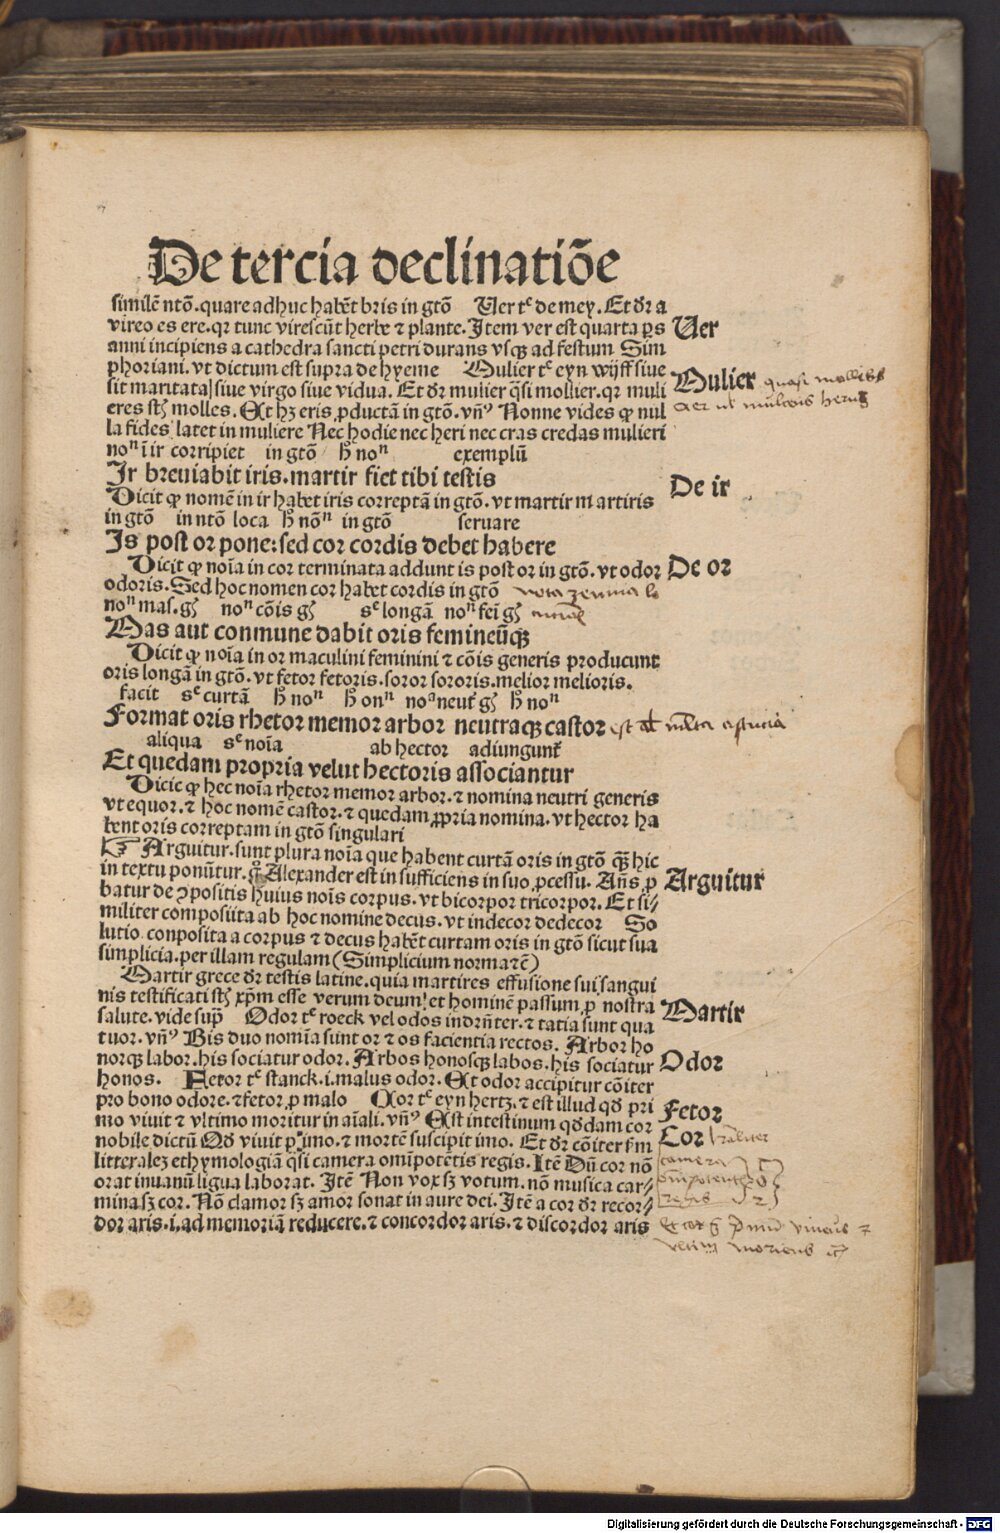 De tercia declinatiōe
similē ntō. quare adhuc habēt bris in gtō Ver tͨ de mey. Et dr̄ a
vireo es ere. qr tunc virescūt herbe ⁊ plante. Item ver est quarta ps
Ver
anni incipiens a cathedra sancti petri durans vsqꝫ ad festum Sim
phoriani. vt dictum est supra de hyeme Mulier tͨ eyn wijff siue
Mulier quasi
sit maritata| siue virgo siue vidua. Et dr̄ mulier q̄si mollier. qr muli
eres sūt molles. Et hꝫ eris ꝓductā in gtō. vn̄ꝰ Nonne vides ꝙ nul
la fides latet in muliere Nec hodie nec heri nec cras credas mulieri
noⁿ ī ir corripiet in gtō h̄ noⁿ exemplū
Ir breuiabit iris. martir fiet tibi testis
De ir
Dicit ꝙ nomē in ir habet iris correptā in gtō. vt martir martiris
in gtō in ntō loca h̄ nōⁿ in gtō seruare
Is post or pone: sed cor cordis debet habere
Dicit ꝙ noīa in cor terminata addunt is post or in gtō. vt odor
De or
odoris. Sed hoc nomen cor habet cordis in gtō nota
noⁿ mas. gꝭ noⁿ cōis gꝭ sͤ longā noⁿ feī gꝭ
Mas aut conmune dabit oris femineūqꝫ
Dicit ꝙ noīa in or maculini feminini ⁊ cōis generis producunt
oris longā in gtō. vt fetor fetoris. soror sororis. melior melioris.
facit sͤ curtā h̄ noⁿ h̄ onⁿ noᵃ neut̄ gꝭ h̄ noⁿ
Format oris rhetor memor arbor neutraqꝫ castor est astucia
aliqua sͤ noīa ab hector adiungunt̄
Et quedam propria velut hectoris associantur
Dicic ꝙ hec noīa rhetor memor arbor. ⁊ nomina neutri generis
vt equor. ⁊ hoc nomē castor. ⁊ quedam ꝓpria nomina. vt hector ha
bent oris correptam in gtō singulari
☞ Arguitur. sunt plura noīa que habent curtā oris in gtō q̄ꝫ hic
in textu ponūtur. Alexander est in sufficiens in suo ꝓcessu. An̄s ꝓ
Arguitur
batur de ꝯpositis huius noīs corpus. vt bicorpor tricorpor. Et si⸗
militer composiita ab hoc nomine decus. vt indecor dedecor So
lutio. conposita a corpus ⁊ decus habēt curtam oris in gtō sicut sua
simplicia. per illam regulam (Simplicium norma ⁊c̄)
Martir grece dr̄ testis latine. quia martires effusione sui sangui
nis testificati sūt xp̄m esse verum deum! et hominē passum ꝓ nostra
Martir
salute. vide sup̄ Odor tͨ roeck vel odos indrn̄ter. ⁊ talia sunt qua
tuor. vn̄ꝰ Bis duo nomīa sunt or ⁊ os facientia rectos. Arbor ho
norqꝫ labor. his sociatur odor. Arbos honosqꝫ labos. his sociatur
Odor
honos. Fetor tͨ stanck. i. malus odor. Et odor accipitur cōiter
pro bono odore. ⁊ fetor ꝓ malo Cor tͨ eyn hertz. ⁊ est illud qd̄ pri
Fetor
mo viuit ⁊ vltimo moritur in aīali. vn̄ꝰ Est intestinum qd̄dam cor
Cor
nobile dictū Qd̄ viuit p̄ᵒimo. ⁊ mortē suscipit imo. Et dr̄ cōiter fm̄
litteralez ethymologiā q̄si camera omīpotētis regis. Itē Dū cor nō
camera
orat inuanū ligua laborat. Itē Non vox sꝫ votum. nō musica car⸗
omīpotentis
mina sꝫ cor. Nō clamor sꝫ amor sonat in aure dei. Itē a cor dr̄ recor⸗
regis
dor aris. i. ad memoriā reducere. ⁊ concordor aris. ⁊ discordor aris
moriens
Digitalisierung gefördert durch die Deutsche Forschungsgemeinschaft - DFG